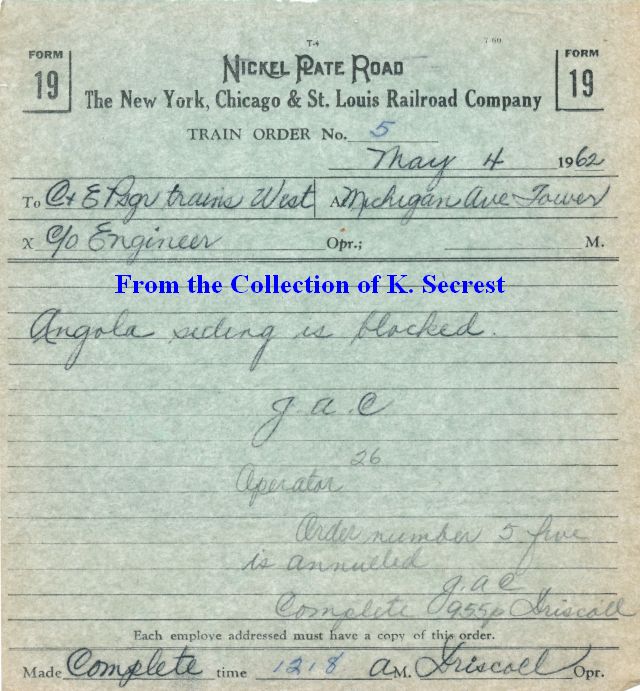 T-4
7-60
FORM 19
NICKEL PLATE ROAD
FORM 19
The New York, Chicago & St. Louis Railroad Company
TRAIN ORDER No. 5
May 4 1962
To C&E Psgr trains West At Michigan Ave Tower
X C/o Engineer Opr.; M.
From the Collection of K. Secrest
Angola siding is blocked.
J. a. C
26
Operator
Order number 5 five
is annulled
J. a C
Complete 955p Driscoll
Each employe addressed must have a copy of this order.
Made Complete time 1218 AM. Driscoll Opr.